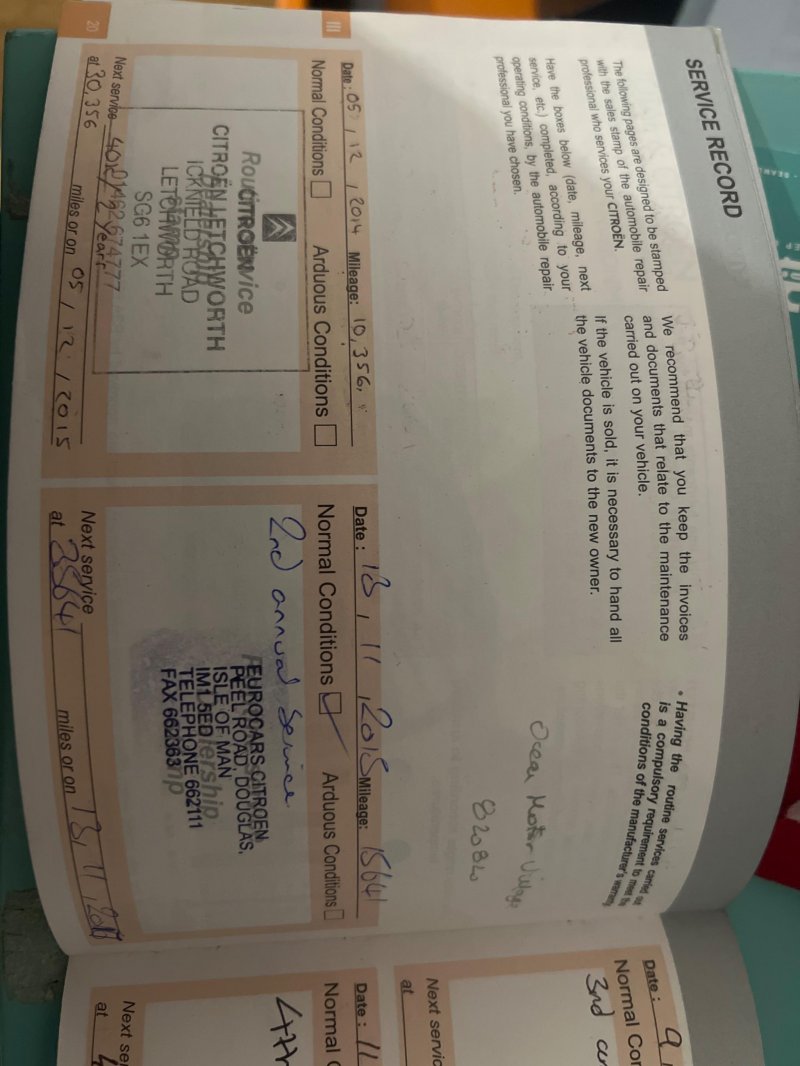 SERVICE RECORD
The following pages are designed to be stamped
with the sales stamp of the automobile repair
professional who services your CITROËN.
Have the boxes below (date, mileage, next
service, etc.) completed, according to your
operating conditions, by the automobile repair
professional you have chosen.
We recommend that you keep the invoices
and documents that relate to the maintenance
carried out on your vehicle.
If the vehicle is sold, it is necessary to hand all
the vehicle documents to the new owner.
• Having the routine services carried out
is a compulsory requirement to meet the
conditions of the manufacturer's warranty.
Ocean Motor Village
820820
Date: 05 / 12 / 2014 Mileage: 10,356
Normal Conditions Arduous Conditions
CITROËN
CITROËN LETCHWORTH
ICKNIELD ROAD
LETCHWORTH
SG6 1EX
01462 674777
Next service
at 30,356 miles or on 05 / 12 / 2015
Date: 13, 11, 2015 Mileage: 15641
Normal Conditions Arduous Conditions
2nd annual Service
EUROCARS CITROEN
PEEL ROAD, DOUGLAS,
ISLE OF MAN
IM1 5ED
TELEPHONE 662111
FAX 662363
Next service
at 35641 miles or on 13, 11, 
III
20
Date: 9
Normal Con
3rd
Next servic
at
Date: 11
Normal
4th
Next se
at